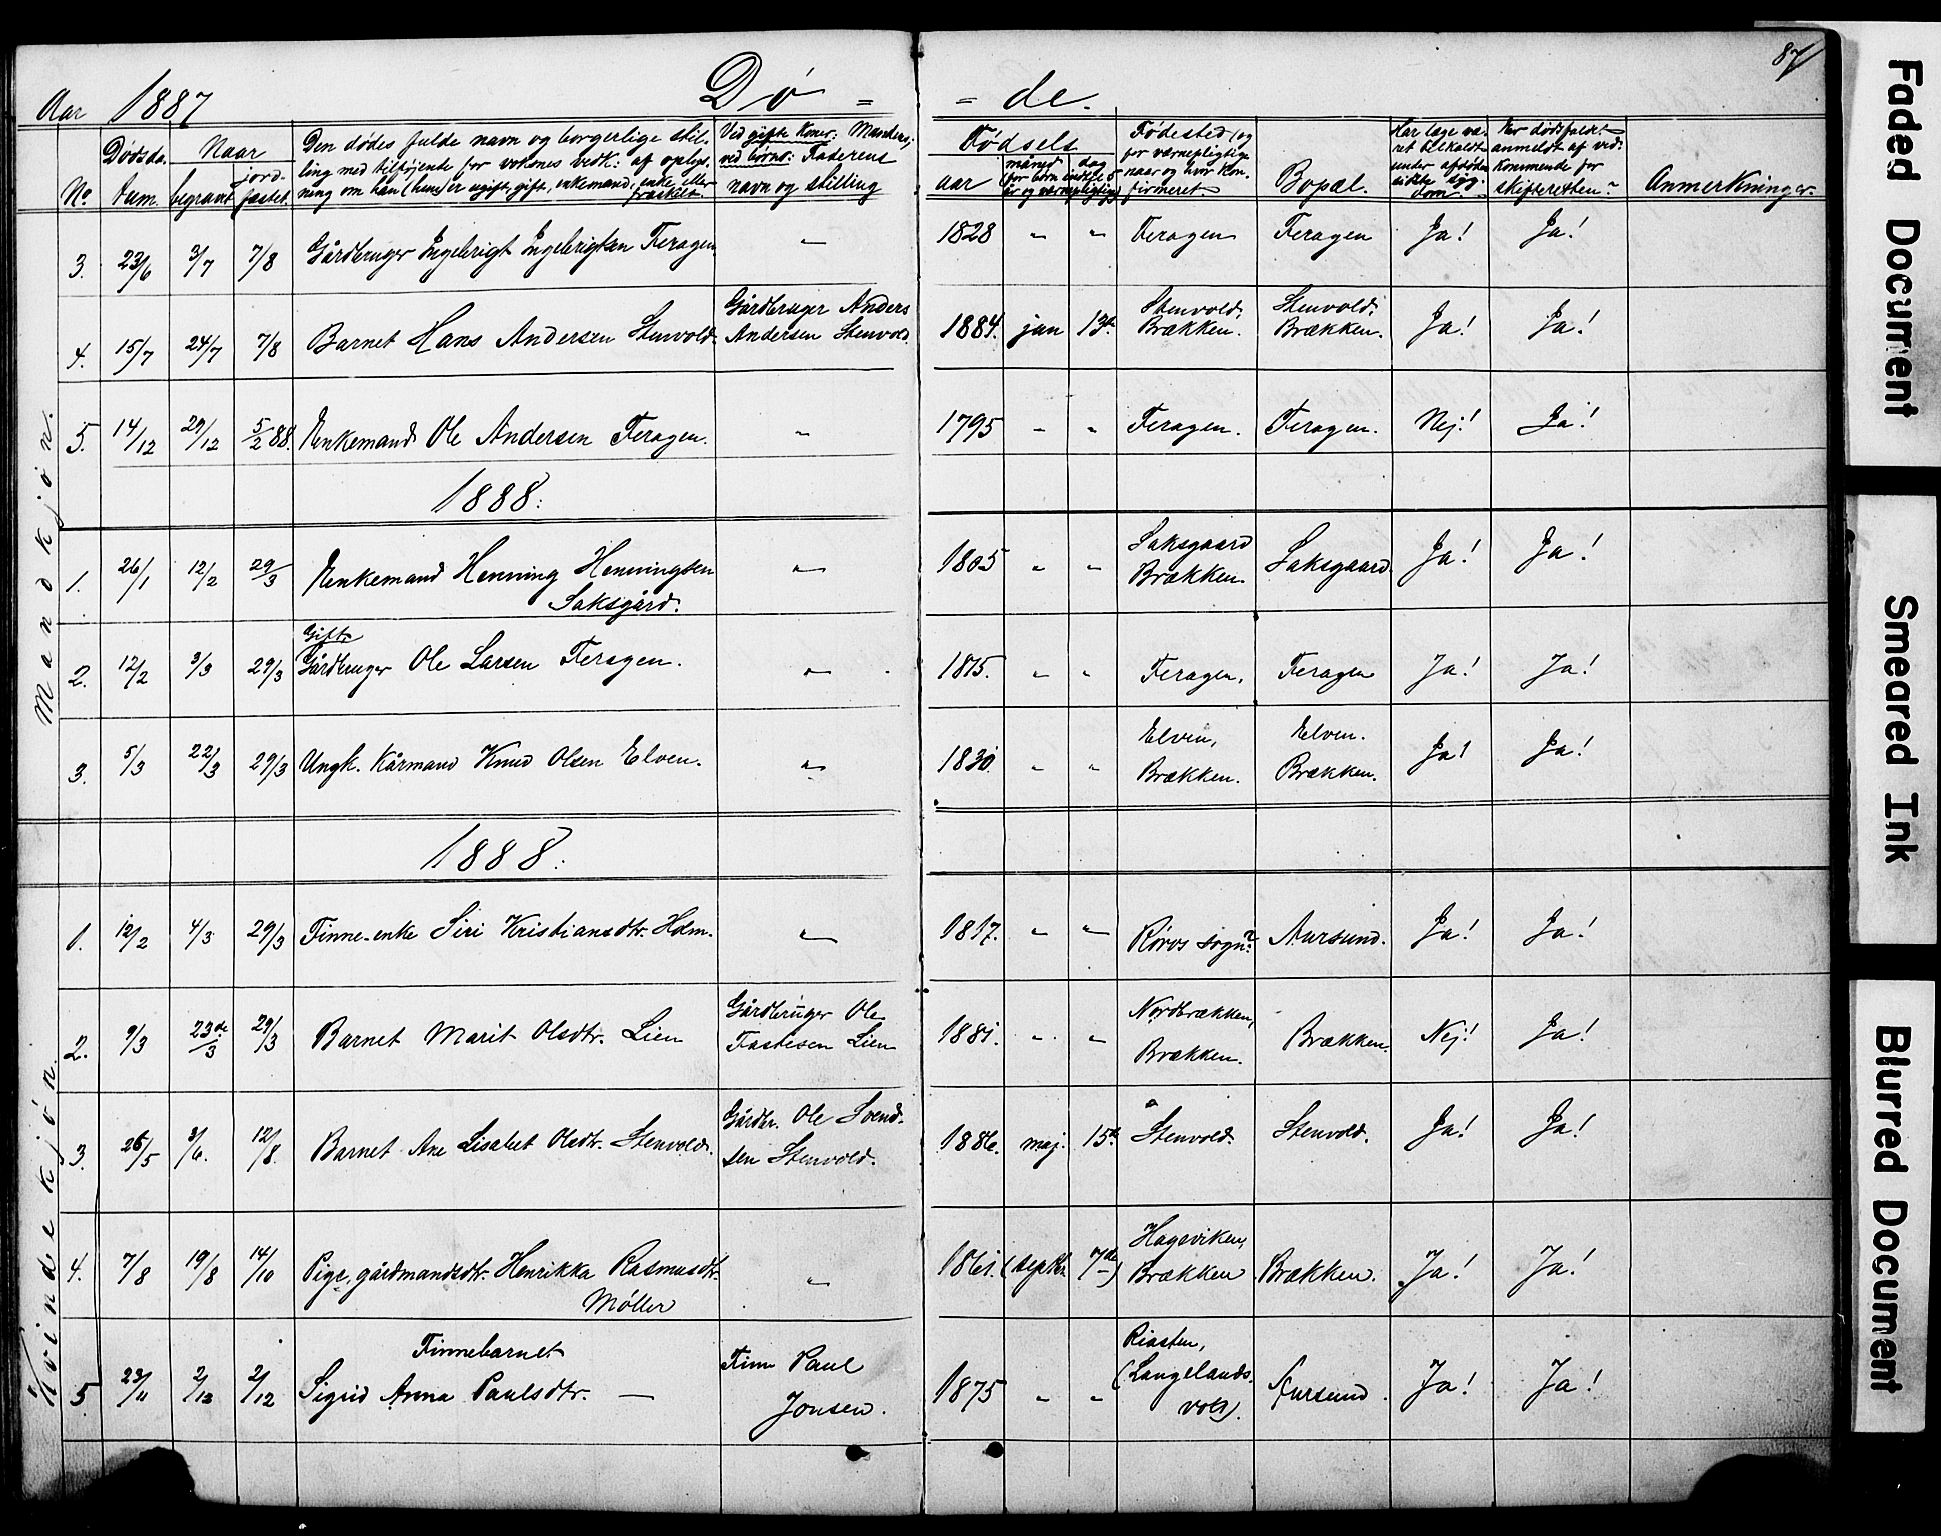 87
Aar 1887 Dø = = de.
No.
Dødsda-
tum.
Naar
begravet
jord-
fæstet.
Den dødes fulde navn og borgerlige stil-
ling med tilføjende for voksnes vedk: af oplys-
ning om han (hun) er ugift, gift, enkemand, enke eller
fraskilt.
Ved gifte Koner: Mandens;
ved børns: Faderens
navn og stilling
Fødsels
aar
måned
dag
Fødested (og
for værnepligtige
naar og hvor kon-
firmeret
Bopæl.
Har læge væ-
ret tilkaldt
under afdødes
sidste syg-
dom?
Er dødsfaldet
anmeldt af ved-
kommende for
skifteretten?
Anmerkninger.
Mandkjøn.
3. 23/6 3/7 7/8 Gårdbruger Engebrigt Engebrigtsen Feragen " 1828 " " Feragen Feragen Ja! Ja!
4. 15/7 24/7 7/8 Barnet Hans Andersen Stenvold. Gårdbruger Anders
Andersen Stenvold. 1884. jan 13de Stenvold,
Brækken. Stenvold.
Brækken. Ja! Ja!
5. 14/12 29/12 5/2 88. Enkemand Ole Andersen Feragen. " 1795 " " Feragen. Feragen. Nej! Ja!
1888.
1. 26/1 12/2 29/3 Enkemand Henning Henningsen
Saksgård. " 1805 " " Saksgaard
Brækken. Saksgaard. Ja! Ja!
2. 12/2 3/3 29/3 Gift
Gårdbruger Ole Larsen Feragen. " 1815. " " Feragen. Feragen Ja! Ja!
3. 5/3 22/3 29/3 Ungk. Kårmand Knud Olsen Elven. " 1830. " " Elven,
Brækken. Elven.
Brækken. Ja! Ja!
1888.
Kvindekjøn.
1. 12/2 4/3 29/3 Finne-enke Siri Kristiansdtr. Holm. " 1817. " " Røros sogn? Aursund. Ja! Ja!
2. 9/3 23de/3 29/3 Barnet Marit Olsdtr. Lien Gårdbruger Ole
Fastesen Lien 1881. " " Nordbrækken,
Brækken. Brækken. Nej! Ja!
3. 26/5 3/6. 12/8. Barnet Ane Lisabet Olsdtr. Stenvold. Gårdbr. Ole Svend-
sen Stenvold. 1886. maj. 15de Stenvold. Stenvold. Ja! Ja!
4. 7/8 19/8 14/10 Pige, gårdmandsdtr. Henrikka Rasmusdtr.
Møller " 1861. (septbr. 7de) Hageviken,
Brækken Brækken. Ja! Ja!
5. 23/11 2/12 2/12 Finnebarnet
Sigrid Anna Paulsdtr. — Finn Paul
Jonsen. 1875 " " Riasten,
(Langelands-
vold). Aursund. Ja! Ja!
Faded Document
Smeared Ink
Blurred Document